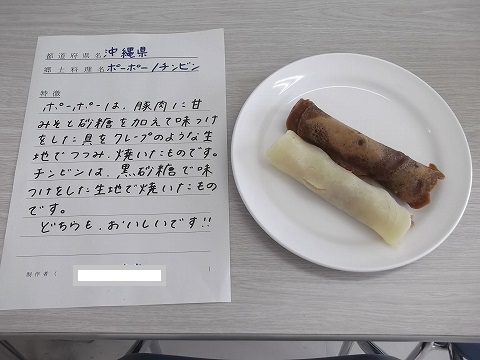 都道府県名 沖縄県
郷土料理名 ポーポー/チンビン
特徴
ポーポーは、豚肉に甘
みそと砂糖を加えて味つけ
をした具をクレープのような生
地でつつみ、焼いたものです。
チンビンは、黒砂糖で味
つけをした生地で焼いたもの
です。
どちらも、おいしいです!!
制作者( )